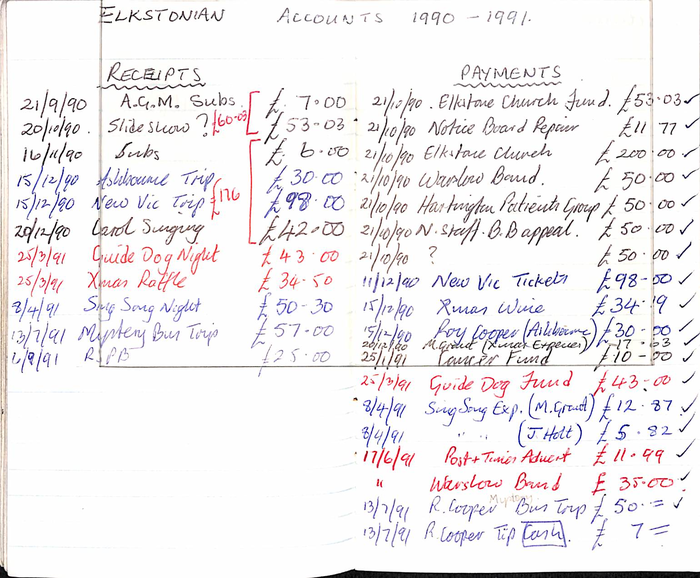 ELKSTONIAN ACCOUNTS 1990 - 1991.
RECEIPTS
21/9/90 A.G.M. Subs. £ 7.00
20/10/90. Slideshow ? £60-03 £ 53-03
16/11/90 Subs £ 6.00
15/12/90 Ashbourne Trip £30.00
15/12/90 New Vic Trip £176 £98.00
20/12/90 Carol Singing £42.00
25/3/91 Guide Dog Night £ 43.00
25/3/91 Xmas Raffle £ 34.50
8/4/91 Sing Song Night £ 50-30
13/7/91 Mystery Bus Trip £ 57.00
£25.00
PAYMENTS
21/10/90. Elkstone Church Fund. £53-03 ✓
21/10/90 Notice Board Repair £11 77 ✓
21/10/90 Elkstone Church £200.00 ✓
21/10/90 Warslow Band. £ 50.00 ✓
21/10/90 Hartington Patients Group £ 50.00 ✓
21/10/90 N. Staff. B.B appeal. £ 50.00 ✓
21/10/90 ? £ 50.00 ✓
11/12/90 New Vic Tickets £98-00 ✓
15/12/90 Xmas Wine £34.19 ✓
15/12/90 Roy Cooper (Ashbourne) £30-00 ✓
20/12/90 M. Grant (Xmas Expenses) 17-03
25/1/91 Cancer Fund £10-00 ✓
25/3/91 Guide Dog Fund £43-00 ✓
8/4/91 Sing Song Exp. (M. Grant) £12.87 ✓
8/4/91 " " (J. Holt) £ 5.82 ✓
17/6/91 Post + Times Advert £11.99 ✓
" Warslow Band £ 35.00 ✓
13/7/91 R. Cooper Mystery Bus Trip £ 50-= ✓
13/7/91 R. Cooper Tip Cash. £ 7 =